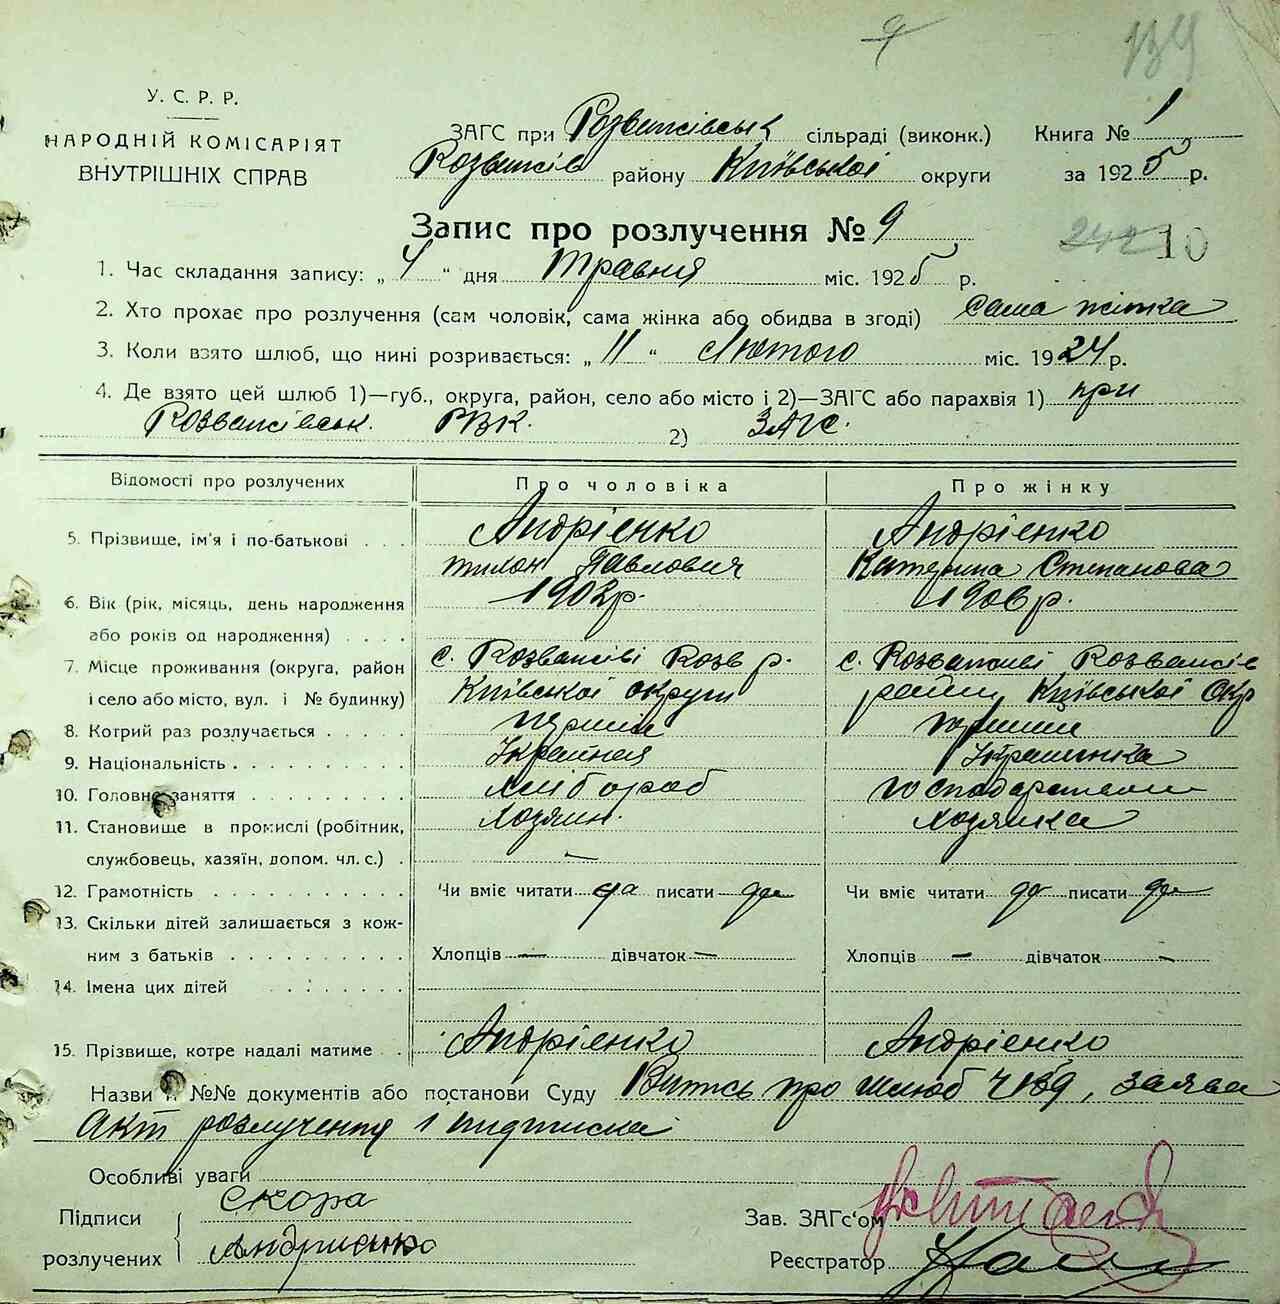 139
У. С. Р. Р.
НАРОДНІЙ КОМІСАРІЯТ
ВНУТРІШНІХ СПРАВ
ЗАГС при Розважівськ сільраді (виконк.) Книга № 1
Розважів району Київської округи за 1925 р.
Запис про розлучення № 9
242 10
1. Час складання запису: „ 4 " дня травня міс. 1925 р.
2. Хто прохає про розлучення (сам чоловік, сама жінка або обидва в згоді) Сама жінка
3. Коли взято шлюб, що нині розривається: „ 11 " Лютого міс. 1924 р.
4. Де взято цей шлюб 1)—губ., округа, район, село або місто і 2)—ЗАГС або парахвія 1) при
Розважівськ. РВК. 2) ЗАГС.
Відомості про розлучених Про чоловіка Про жінку
5. Прізвище, ім'я і по-батькові . . . Андрієнко Андрієнко
Павлович Катерина Степанова
6. Вік (рік, місяць, день народження 1902р. 1906р.
або років од народження) . . . .
7. Місце проживання (округа, район с. Розважіві Розв р. с. Розважіві Розважів
і село або місто, вул. і № будинку) Київської округи району Київської Окр
8. Котрий раз розлучається . . . . . перший перший
9. Національність . . . . . . . . . . Українец Українка
10. Головне заняття . . . . . . . . . хлібороб господарством
11. Становище в промислі (робітник, Хозяин. Хозяйка
службовець, хазяїн, допом. чл. с.) . —
12. Грамотність . . . . . . . . . . . Чи вміє читати да писати да Чи вміє читати да писати да
13. Скільки дітей залишається з кож-
ним з батьків . . . . . . . . . . Хлопців — дівчаток — Хлопців — дівчаток —
14. Імена цих дітей . . . . . . .
15. Прізвище, котре надалі матиме . . Андрієнко Андрієнко
Назви і №№ документів або постанови Суду Витсь про шлюб ч 159, заява
Акт розлучення і підписка
Особливі уваги
Підписи Скора Зав. ЗАГс'ом
розлучених Андриенко Реєстратор